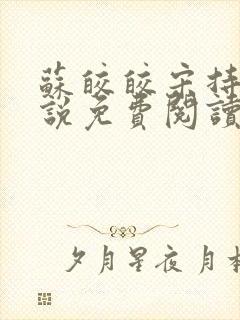 蘇皎皎宋持
說免費閱讀
夕月星夜月